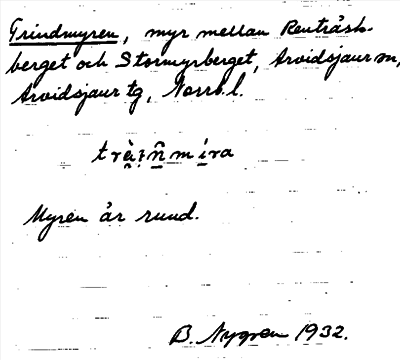 Trindmyren, myr mellan Renträsk-
berget och Stormyrberget, Arvidsjaur sn,
Arvidsjaur tg, Norrb. l.
Myren är rund.
B. Nygren 1932.